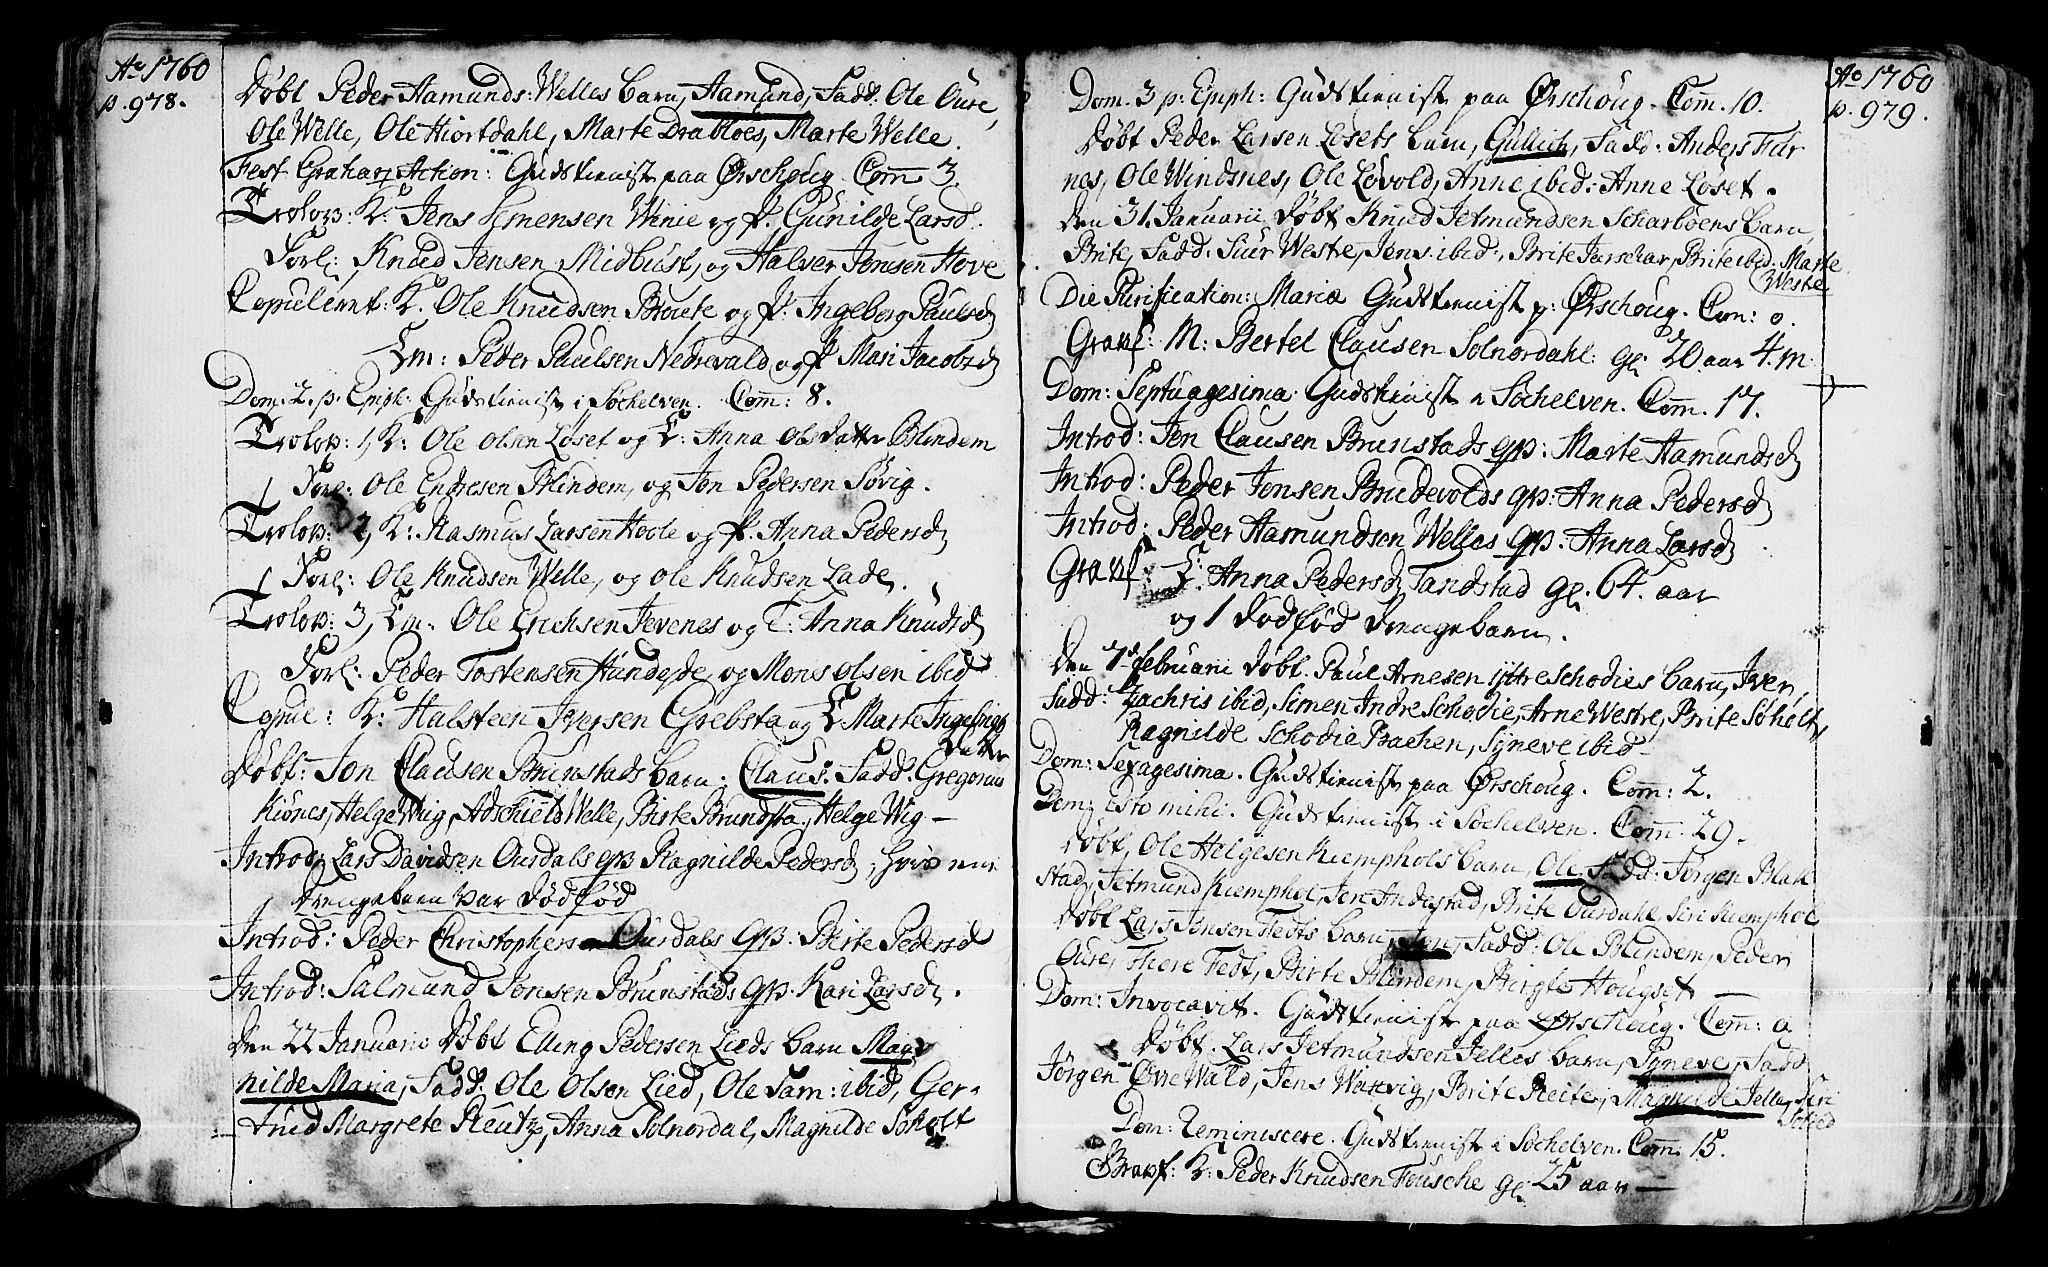 Ao 1760
p. 978.
Døbt Peder Aamunds: Welles barn, Aamund, Fadd: Ole Oure,
Ole Welle, Ole Hiortdahl, Marte Drabloes, Marte Welle.
Fest Gratiar: Action: Gudstienist paa Ørschoug. Com 3.
Trolov: K: Jens Simensen Winie og P. Gunilde Larsd.
Forl: Knud Jensen Midbust, og Halver Jensen Hove
Copuleret: K. Ole Knudsen Broute og P: Ingeborg Paulsd
Em: Peder Paulsen Nedrevald og P Mari Jacobsd
Dom. 2. p. Epiph: Gudstienist i Søchelven. Com: 8.
Trolov: 1, K: Ole Olsen Løset og E: Anna Olsdatter Blindem
Forl: Ole Endresen Blindem, og Jon Pedersen Søvig.
Trolov: 2, K: Rasmus Larsen Hoole og P. Anna Pedersd
Forl: Ole Knudsen Welle, og Ole Knudsen Lade.
Trolov: 3, Em: Ole Erichsen Jevenes og E: Anna Knudsd
Forl: Peder Tostensen Hundejde, og Mons Olsen ibid
Copule: K: Halsteen Iversen Grebsta og E: Marte Ingebrigts
datter
Døbt: Jon Clausen Brunstads barn. Claus. Fadd. Gregorius
Kiønes, Helge Wiig, Adschield Welle, Birte Brundsta, Helge Wig —
Introd: Lars Davidsen Ourdals qv: Ragnilde Pedersd, hvis
drengebarn var dødfød
Introd: Peder Christophers Ourdals qv: Birte Pedersd
Introd: Salmund Jonsen Brunstads qv. Kari Larsd.
Den 22 Januarii Døbt Elling Pedersen Lieds barn Mag-
nilde Maria, Fadd: Ole Olsen Lied, Ole Sam: ibid, Ger-
trud Margrete Reutz, Anna Solnordal, Magnilde Scholt
Ao 1760
p. 979.
Dom. 3 p: Epiph: Gudstienist paa Ørschoug. Com. 10.
Døbt Peder Larsen Løsets barn, Gullich, Fadd: Anders Far
nes, Ole Windsnes, Ole Løvold, Anne ibid: Anne Løset.
Den 31. Januarii Døbt Knud Jetmundsen Scharboens barn
Brite, Fadd: Siur Westre, Jens ibid:, Brite Jarschar, Brite ibid: Marte
Westre
Die Purification: Mariæ Gudstienist p: Ørschoug. Com: 0.
Gravf: M: Bertel Clausen Solnordahl: gl: 20 aar 4 m
Dom: Septuagesima. Gudstienist i Søchelven. Com. 17.
Introd: Jon Clausen Brunstads qv: Marte Aamundsd
Introd: Peder Jonsen Brudevolds qv: Anna Pedersd
Introd: Peder Aamundsen Welles qv. Anna Larsd
Gravf: E: Anna Pedersd Tandstad gl: 64. aar
og 1 dødfød drengebarn.
Den 7de februarii døbt. Paul Arnesen yttre Schodies barn, Iver,
Fadd: Zachris ibid, Simen Andre Schodie, Arne Westre, Brite Søholt,
Ragnilde Schodie Bachen, Syneve ibid
Dom: Sexagesima. Gudstienist paa Ørschoug. Com: 2.
Dom: Esto mihi. Gudstienist i Søchelven. Com: 29.
Døbt, Ole Helgesen Kiemphols barn, Ole, Fadd: Jørgen Blak
stad, Jetmund Kiemphol, Jen Andestad, Brite Ourdahl, Siri Kiemphol
Døbt Lars Jonsen Fedts barn, Jon, Fadd: Ole Blindem, Peder
Oure, Tore Fedt, Birte Blindem, Birgte Hougset —
Dom: Invocavit. Gudstienist paa Ørschoug. Com: 0
Døbt. Lars Jetmundsen Jelles barn, Syneve, Fadd
Jørgen Øvre Wald, Jens Watvig, Brite Reite, Magnilde Jelle, Siri
Dom: Reminiscere. Gudstienist i Søchelven. Com. 15.
Gravf: K: Peder Knudsen Fousche gl: 25 aar —